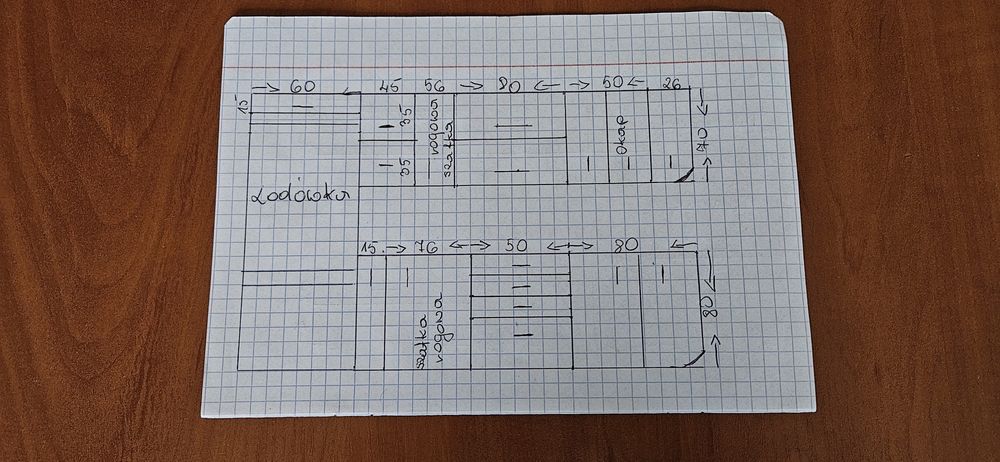 60 45 56 80 50 26
15
35
35
rogowa
szafka
okap
70
Lodówka
15. 76 50 80
szafka
rogowa
80